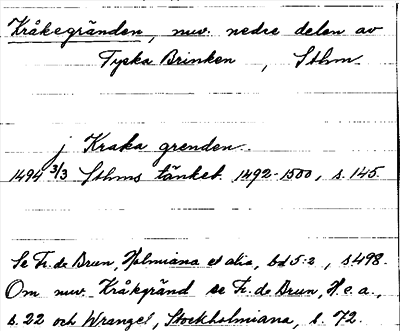 Kråkegränden, nuv. nedre delen av
Tyska Brinken, Sthm
j Kraka grenden.
1494 3/3 Sthms tänkeb. 1492-1500, s. 145.
Se Fr. de Brun, Holmiana et alia, bd 5:2, s 498.
Om nuv. Kråkgränd se Fr. de Brun, H. e. a.,
s. 22 och Wrangel, Stockholmiana, s. 72.